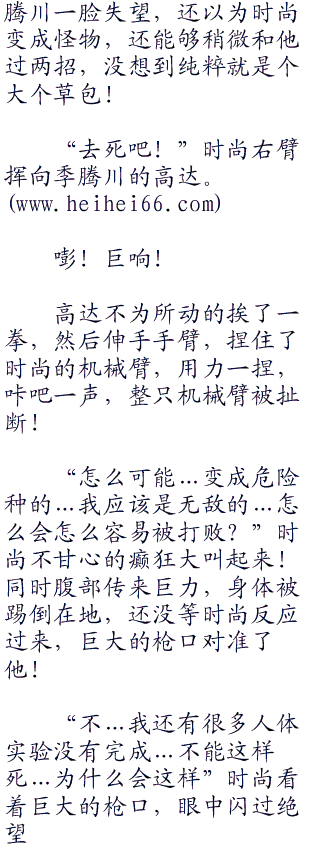 腾川一脸失望，还以为时尚
变成怪物，还能够稍微和他
过两招，没想到纯粹就是个
大个草包！
“去死吧！”时尚右臂
挥向季腾川的高达。
(www.heihei66.com)
嘭！巨响！
高达不为所动的挨了一
拳，然后伸手手臂，捏住了
时尚的机械臂，用力一捏，
咔吧一声，整只机械臂被扯
断！
“怎么可能…变成危险
种的…我应该是无敌的…怎
么会怎么容易被打败？”时
尚不甘心的癫狂大叫起来！
同时腹部传来巨力，身体被
踢倒在地，还没等时尚反应
过来，巨大的枪口对准了
他！
“不…我还有很多人体
实验没有完成…不能这样
死…为什么会这样”时尚看
着巨大的枪口，眼中闪过绝
望